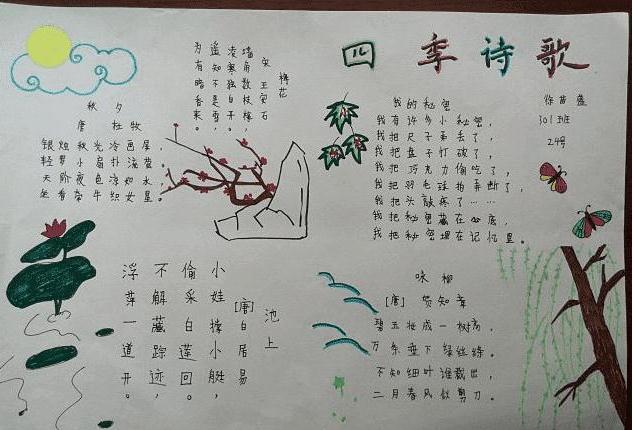 四季诗歌
301班
24号
秋夕
唐 杜牧
银烛秋光冷画屏,
轻罗小扇扑流萤。
天阶夜色凉如水,
坐看牵牛织女星。
梅花
宋 王安石
墙角数枝梅,
凌寒独自开。
遥知不是雪,
为有暗香来。
我的秘密
我有许多小秘密,
我把尺子弄丢了,
我把盘子打破了,
我把巧克力偷吃了,
我把羽毛球拍弄断了,
我把头敲疼了……
我把秘密藏在心底,
我把秘密埋在记忆里。
池上
[唐]白居易
小娃撑小艇,
偷采白莲回。
不解藏踪迹,
浮萍一道开。
咏柳
[唐] 贺知章
碧玉妆成一树高,
万条垂下绿丝绦。
不知细叶谁裁出,
二月春风似剪刀。